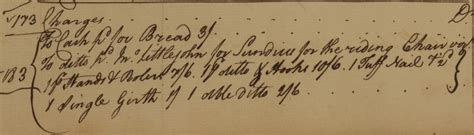 1773 Charges
To Cash pd for Bread 3/.
To ditto pd Mr Littlejohn for Sundries for the riding Chair
133 1 pr Hands & Bolers 2/6. 1 pr ditto & Hooks 10/6. 1 Tuff Nail 7½d
1 Single Girth 6/ 1 olde ditto 2/6